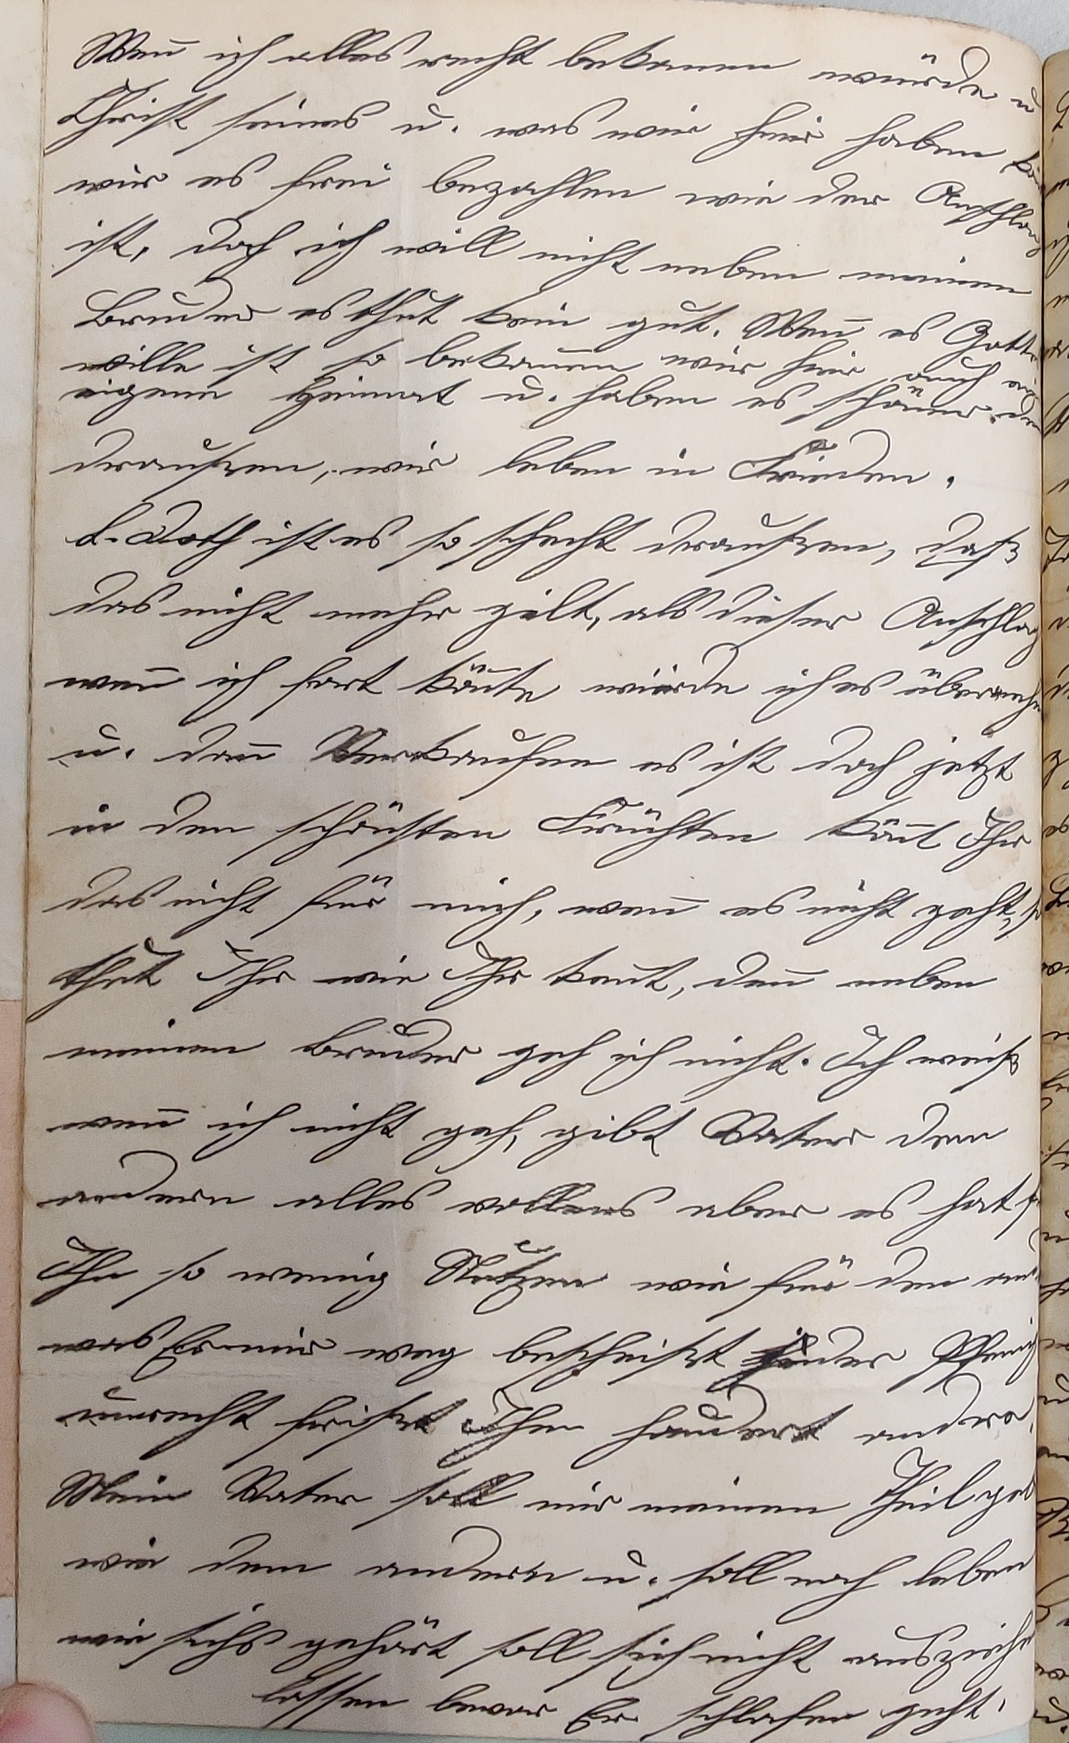 Wen̄ ich alles recht bekomen würde u
Christ seines u. was wir hier haben kön
wir es frei bezahlen wie der Anschlag
ist, doch ich will nicht neben meinen
Bruder es thut kein gut. Wen̄ es Gottes
wille ist so bekom̄en wir hier auch ein
eigene Heimat u. haben es schöner den
draußen, wir leben in Frieden.
L. Doth ist es so schecht draußen, daß
das nicht mehr gilt, als dieser Anschlag
wen̄ ich fort kön̄te würde ich es überneh
u. dan̄ Verkaufen es ist doch jetzt
in den schönsten Früchten kön̄t Ihr
das nicht für mich, wen̄ es nicht geht, so
thut Ihr wie Ihr kent, den̄ neben
meinen Bruder geh ich nicht. Ich weiß
wen̄ ich nicht geh, gibt Vater den
andern alles vollens aber es hat f
Ihn so wenig Nutzen wie für den and
was Er mir weg bescheißt jeder Pfenig
unrecht frißt Ihm hundert andre,
Mein Vater soll mir meinen Theil geb
wie dem andern u. soll noch leben
wie sichs gehört soll sich nicht ausziehe
lassen bevor Er schlafen geht.